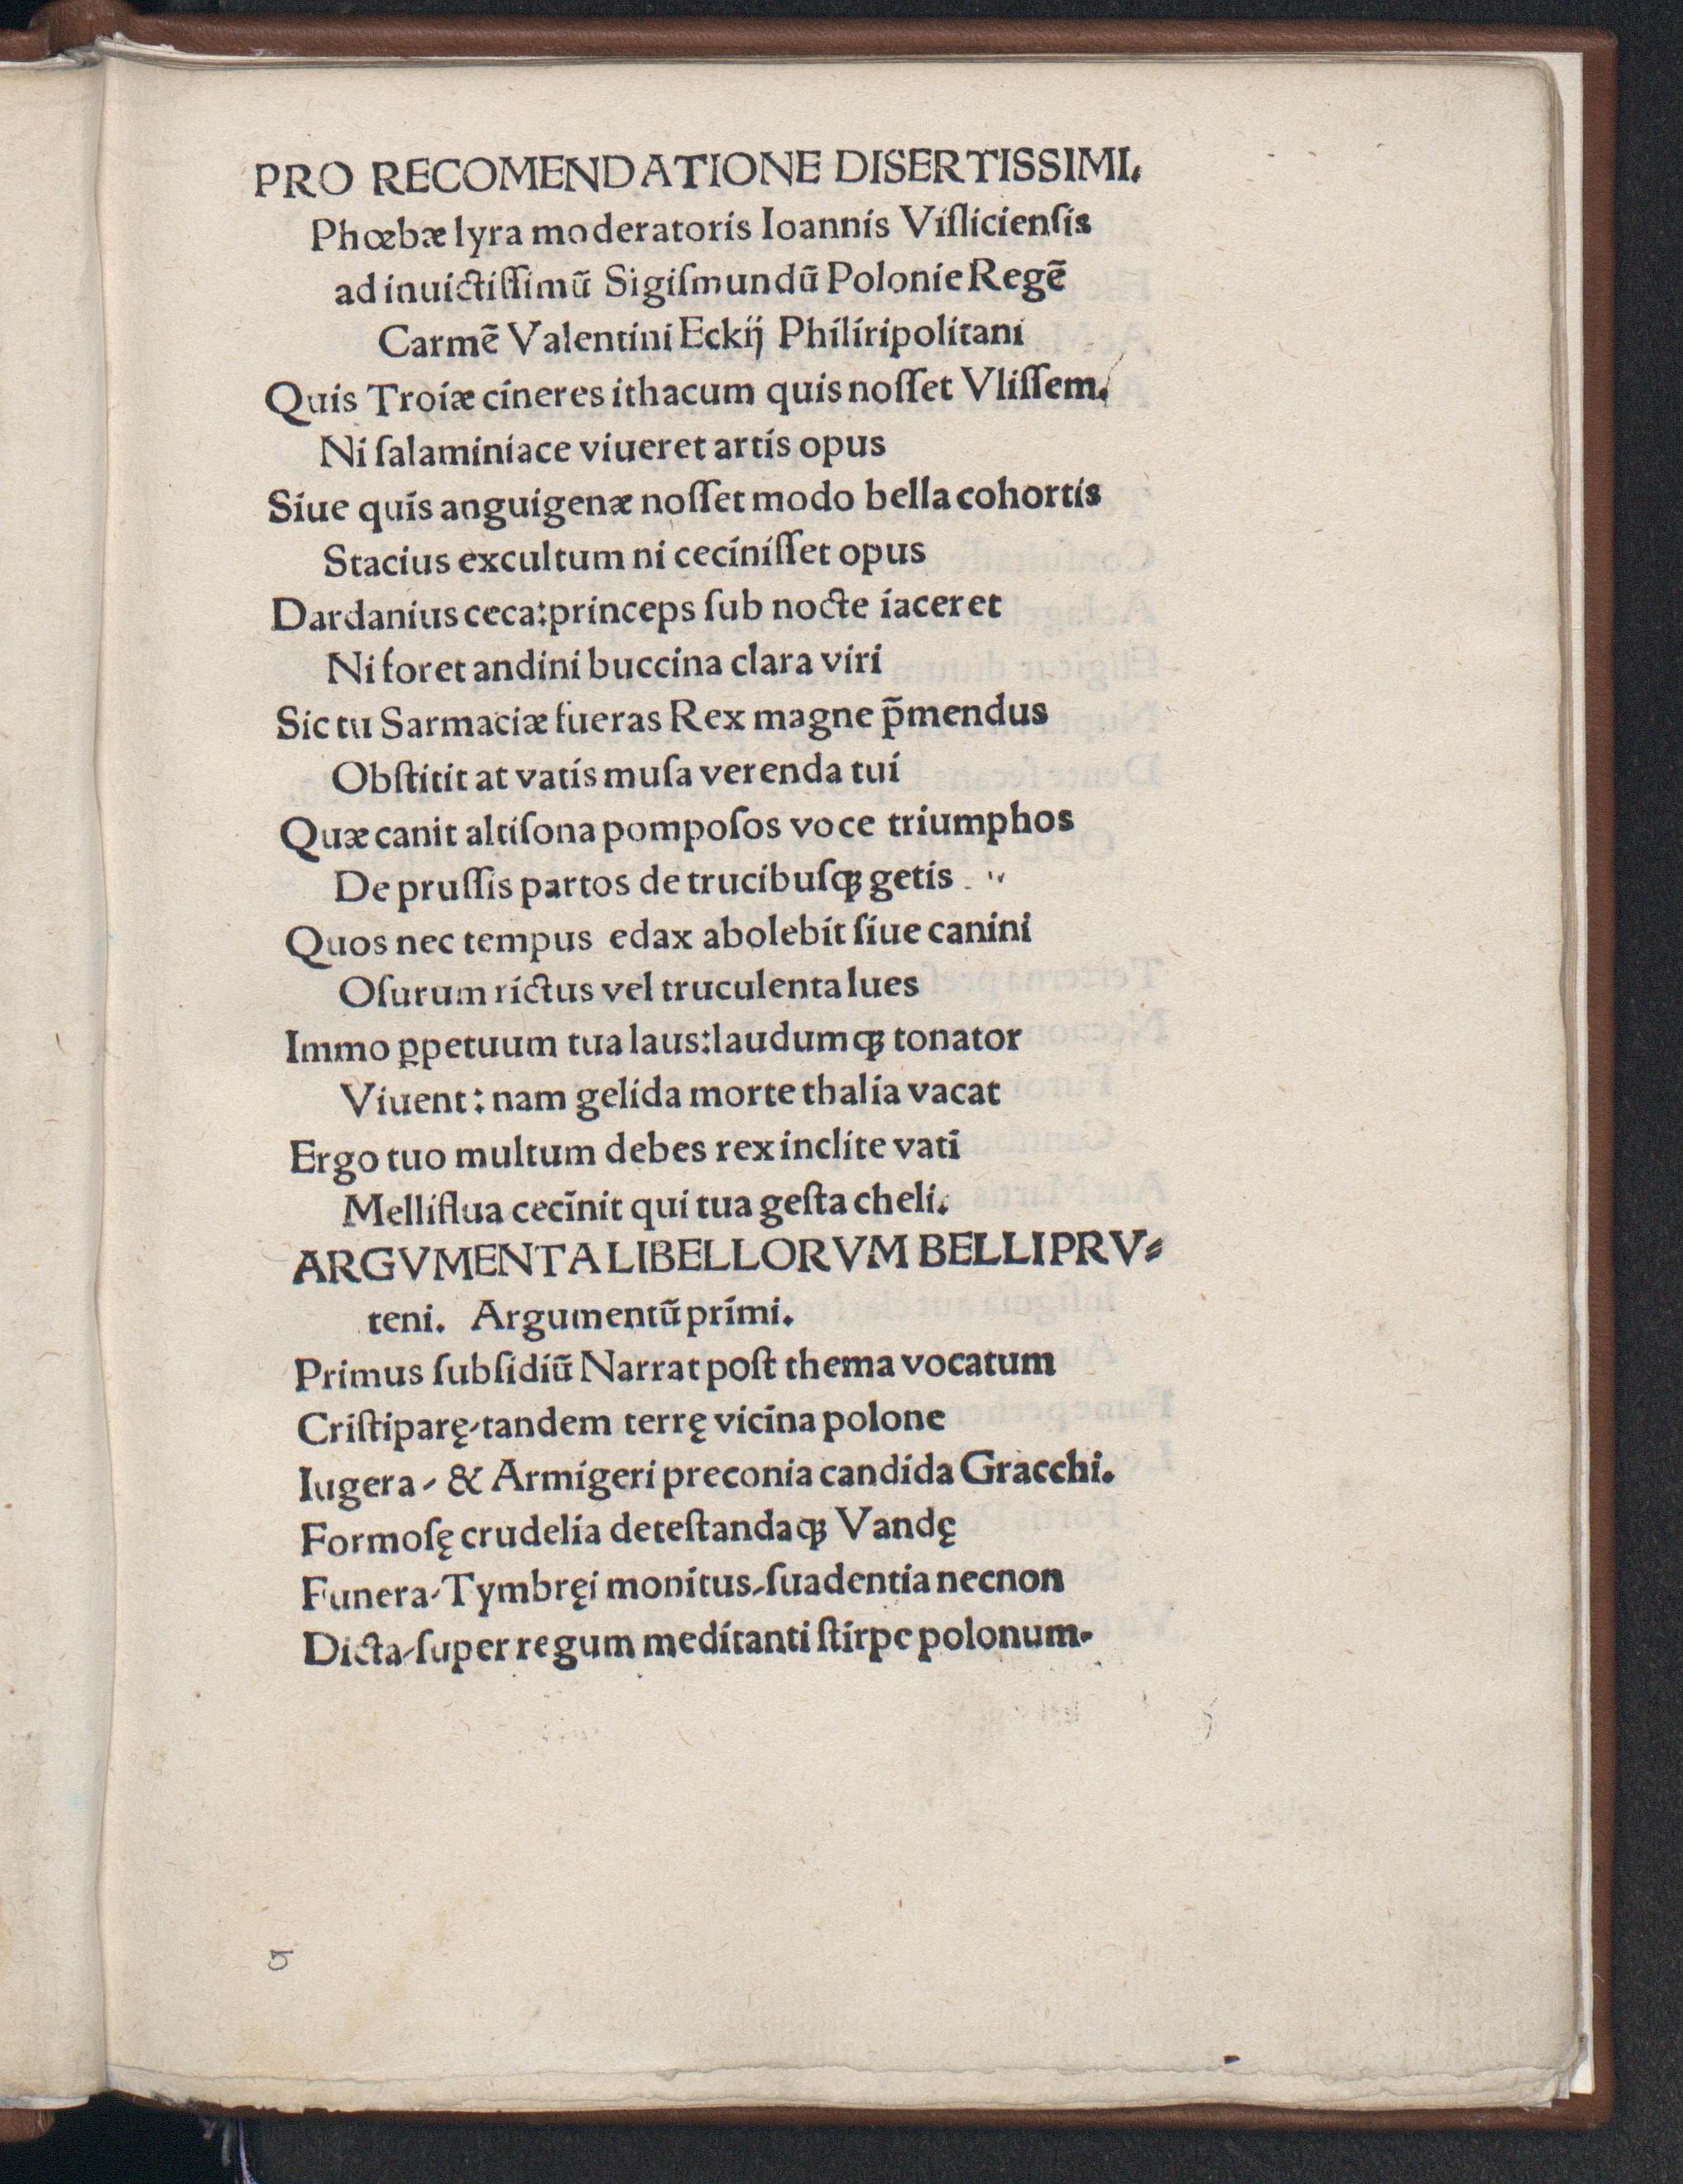 PRO RECOMENDATIONE DISERTISSIMI.
Phœbæ lyra moderatoris Ioannis Viſlicienſis
ad inuictiſſimū Sigiſmundū Polonie Regē
Carmē Valentini Eckij Philiripolitani
Quis Troiæ cineres ithacum quis noſſet Vliſſem.
Ni ſalaminiace viueret artis opus
Siue quis anguigenæ noſſet modo bella cohortis
Stacius excultum ni ceciniſſet opus
Dardanius ceca: princeps ſub nocte iaceret
Ni foret andini buccina clara viri
Sic tu Sarmaciæ fueras Rex magne p̄mendus
Obſtitit at vatis muſa verenda tui
Quæ canit altiſona pompoſos voce triumphos
De pruſſis partos de trucibuſqꝫ getis
Quos nec tempus edax abolebit ſiue canini
Oſurum rictus vel truculenta lues
Immo ꝑpetuum tua laus: laudumqꝫ tonator
Viuent: nam gelida morte thalia vacat
Ergo tuo multum debes rex inclite vati
Melliflua cecinit qui tua geſta cheli.
ARGVMENTA LIBELLORVM BELLI PRV⸗
teni. Argumentū primi.
Primus ſubſidiū Narrat poſt thema vocatum
Criſtiparę⸝tandem terrę vicina polone
Iugera⸝ & Armigeri preconia candida Gracchi.
Formoſę crudelia deteſtandaqꝫ Vandę
Funera⸝Tymbręi monitus⸝ſuadentia necnon
Dicta⸝ſuper regum meditanti ſtirpe polonum.